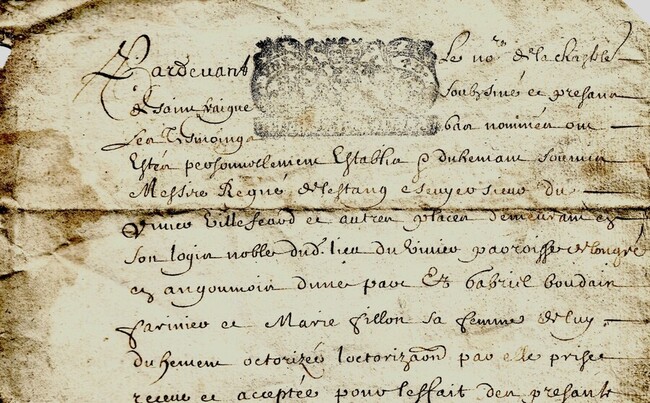 Pardevant Le no.re de la chastele
de saint vaigue soubzsiné et presans
les Tesmoings bas nommés ont
Estés personnellement Establis et duhemant soumis
Messire Regné de lestang escuyer sieur du
vivier villescard et autres places demeurant en
son logis noble dud. lieu du vivier parroisse de longré
en angoumois dune part Et Gabriel boudain
farinier et Marie fillon sa femme de luy
duhement octorizée loctorizaon par elle prise
receue et acceptée pour leffait des presante